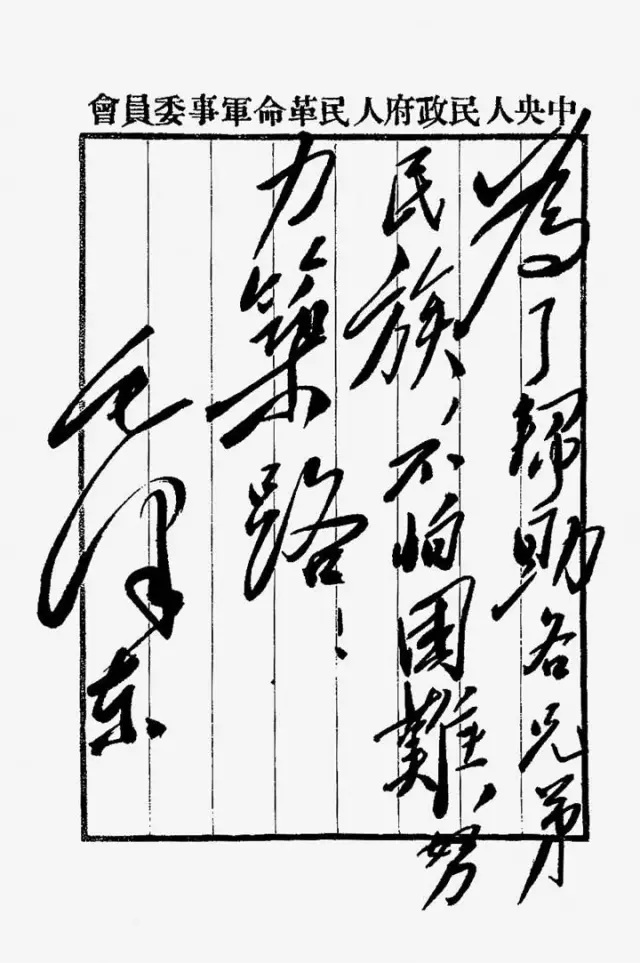 中央人民政府人民革命軍事委員會
為了幫助各兄弟
民族,不怕困難,努
力築路!
毛澤东